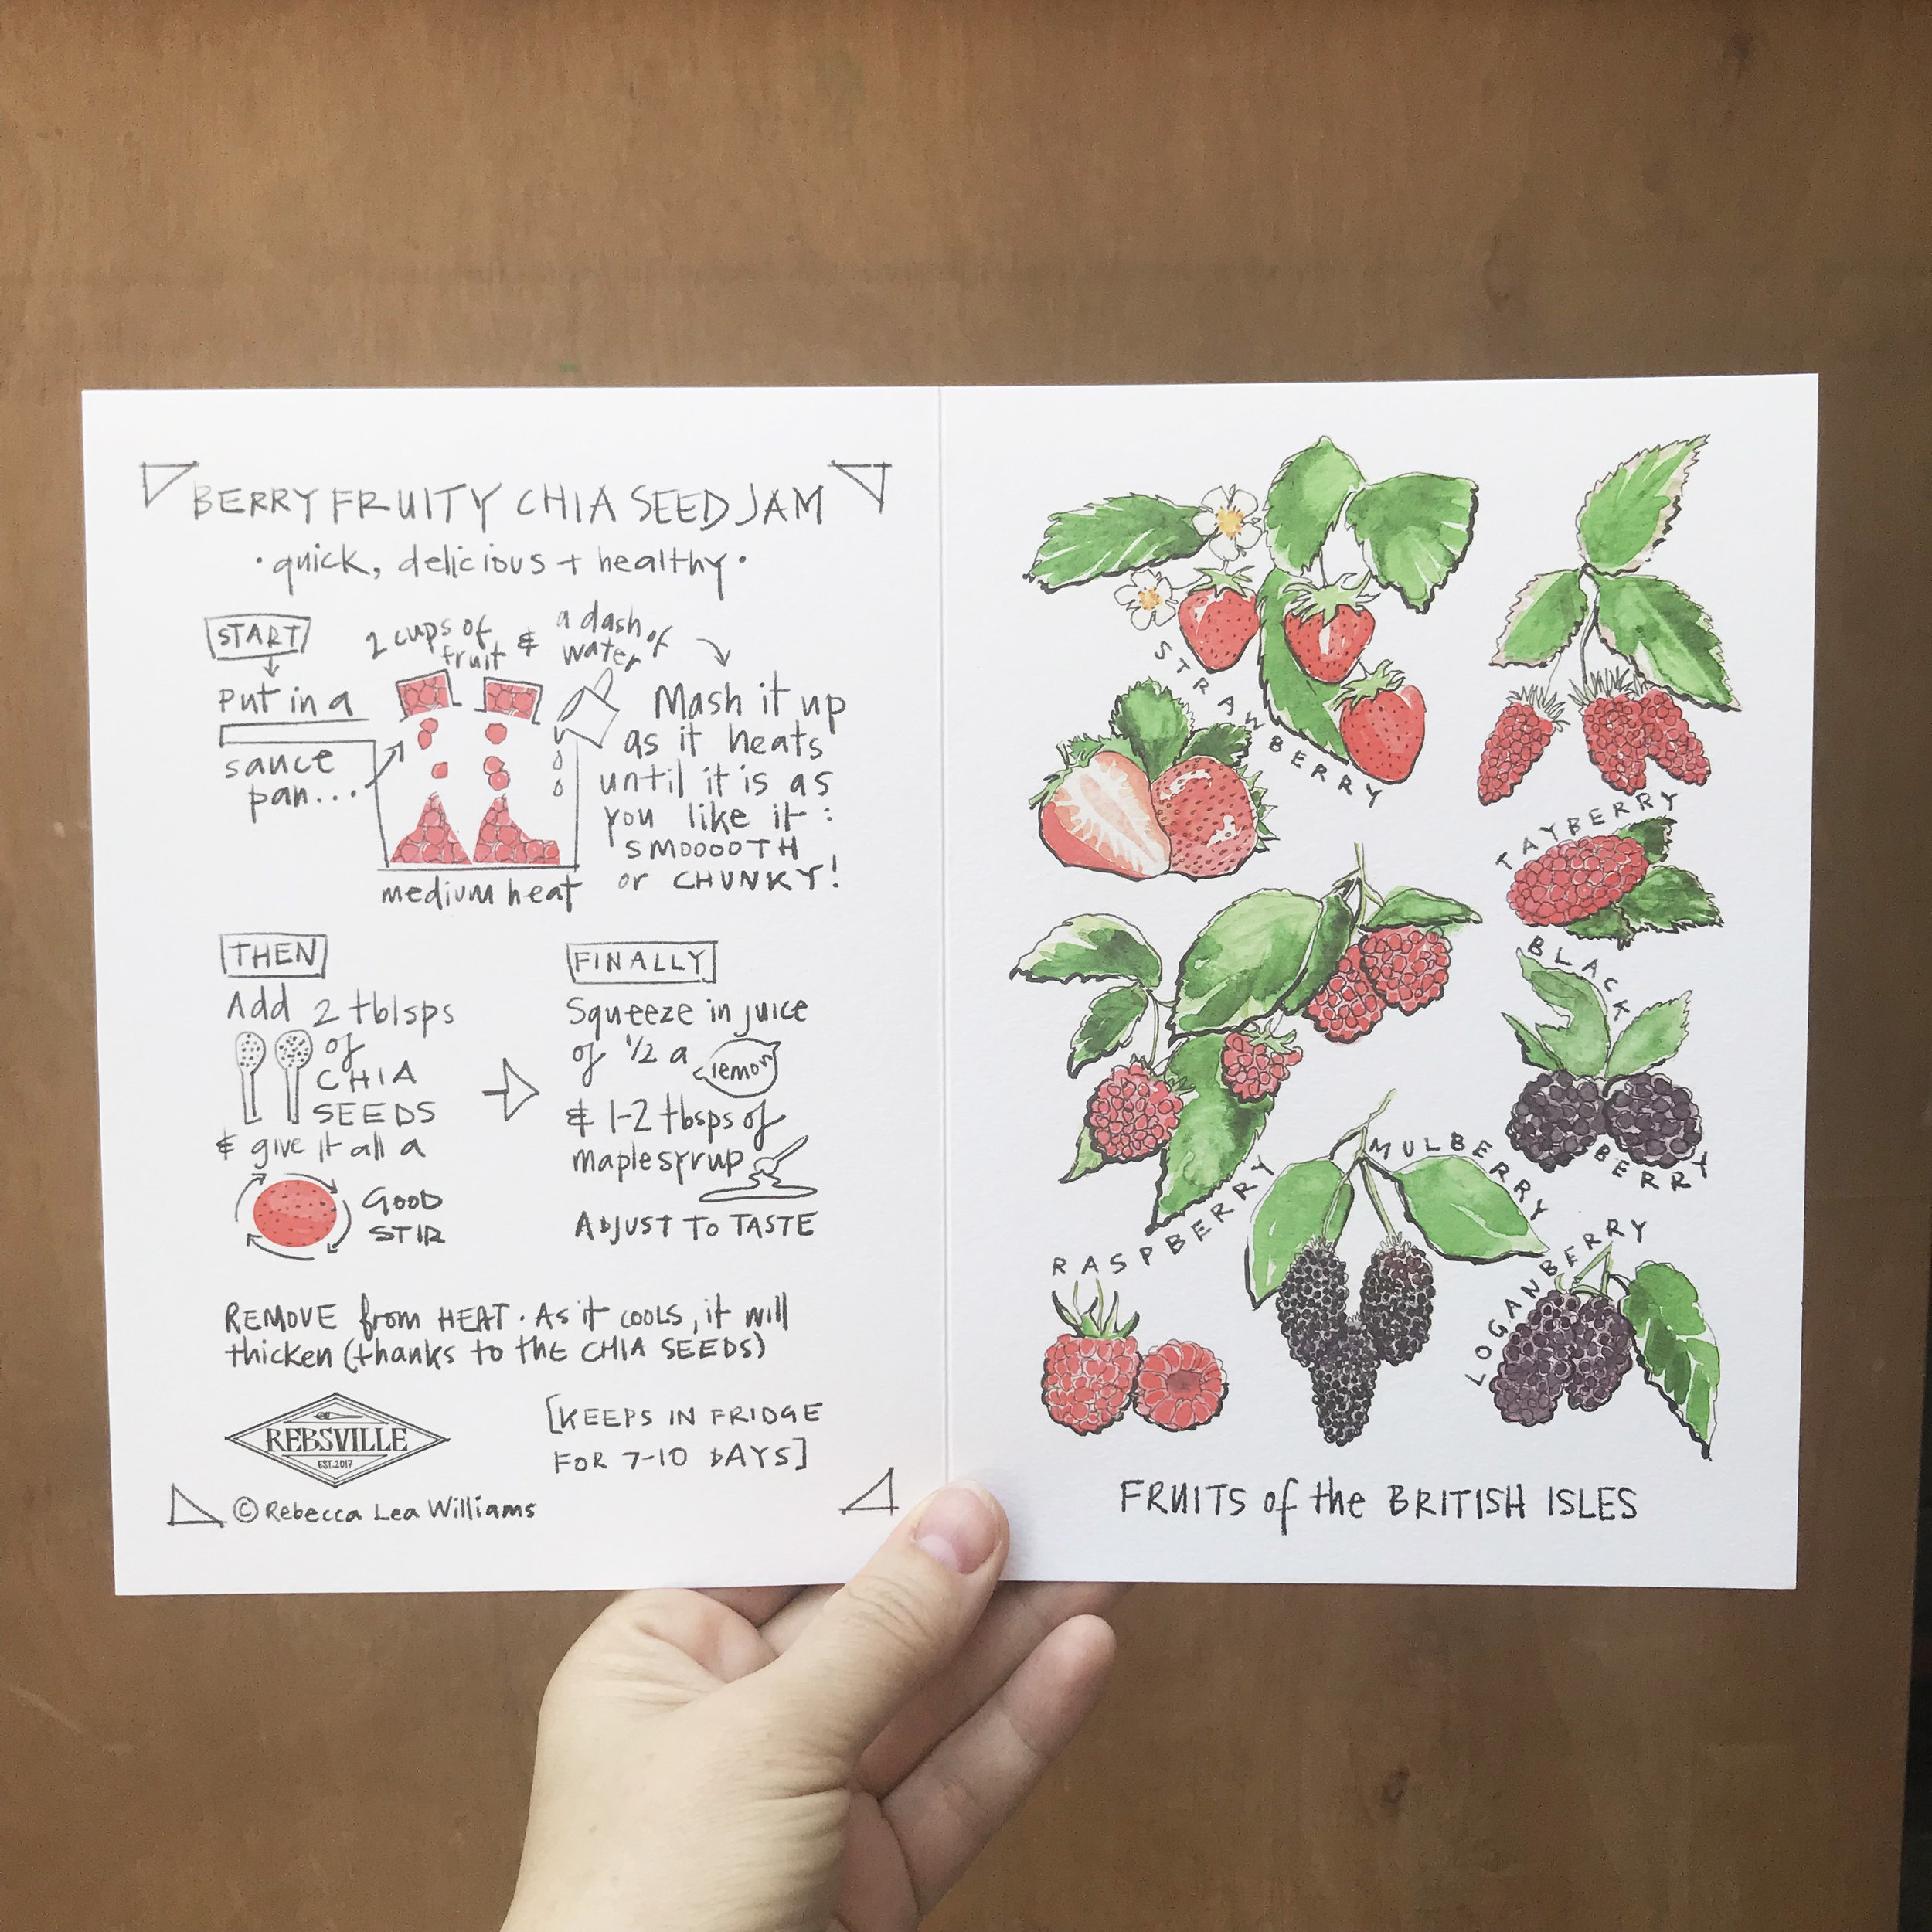 BERRY FRUITY CHIA SEED JAM
·quick, delicious + healthy·
START
2 cups of
fruit
&
a dash of
water
Put in a
sauce
pan...
medium heat
Mash it up
as it heats
until it is as
you like it:
SMOOOOTH
or CHUNKY!
THEN
Add 2 tblsps
of
CHIA
SEEDS
& give it all a
GOOD
STIR
FINALLY
Squeeze in juice
of 1/2 a lemon
& 1-2 tbsps of
maple syrup
ADJUST TO TASTE
REMOVE from HEAT. As it COOLS, it will
thicken (thanks to the CHIA SEEDS)
REBSVILLE
EST. 2017
[KEEPS IN FRIDGE
FOR 7-10 DAYS]
© Rebecca Lea Williams
STRAWBERRY
TAYBERRY
BLACK
BERRY
RASPBERRY
MULBERRY
LOGANBERRY
FRUITS of the BRITISH ISLES